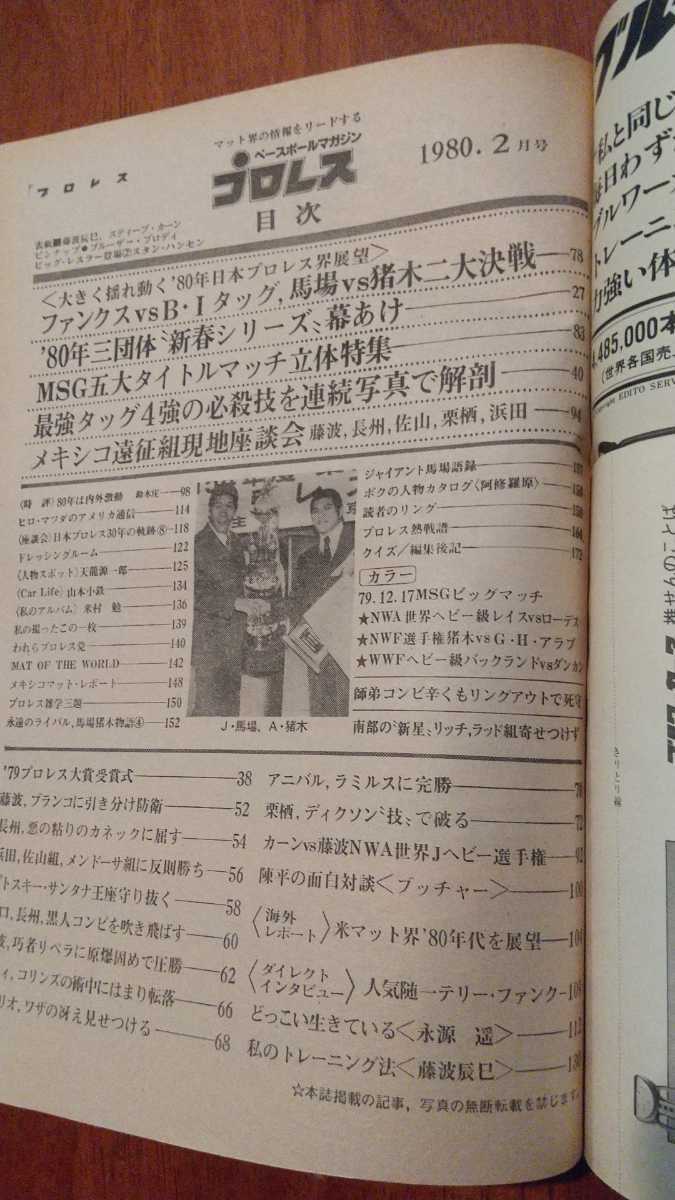 プロレス
マット界の情報をリードする
ベースボールマガジン
プロレス
1980.2月号
目次
表紙■藤波辰巳、スティーブ・カーン
ピンナップ●ブルーザー・ブロディ
ビッグ・レスラー登場②スタン・ハンセン
<大きく揺れ動く'80年日本プロレス界展望>
ファンクスvsB・Iタッグ,馬場vs猪木二大決戦—78
'80年三団体〝新春シリーズ〟幕あけ—27
MSG五大タイトルマッチ立体特集—83
最強タッグ4強の必殺技を連続写真で解剖—40
メキシコ遠征組現地座談会 藤波,長州,佐山,栗栖,浜田—94
〈時 評〉80年は内外激動 鈴木庄一—98
ヒロ・マツダのアメリカ通信—114
〈座談会〉日本プロレス30年の軌跡⑧—118
ドレッシングルーム—122
〈人物スポット〉天龍源一郎—125
〈Car Life〉山本小鉄—134
〈私のアルバム〉米村 勉—136
私の撮ったこの一枚—139
われらプロレス党—140
MAT OF THE WORLD—142
メキシコマット・レポート—148
プロレス雑学三題—150
永遠のライバル,馬場猪木物語④—152
J・馬場、A・猪木
ジャイアント馬場語録
ボクの人物カタログ〈阿修羅原〉
読者のリング
プロレス熱戦譜—164
クイズ/編集後記—172
カラー
79.12.17MSGビッグマッチ
★NWA世界ヘビー級レイスvsローデス
★NWF選手権猪木vsG・H・アラブ
★WWFヘビー級バックランドvsダンカン
師弟コンビ辛くもリングアウトで死守
南部の〝新星〟リッチ,ラッド組寄せつけず
'79プロレス大賞受賞式—38
藤波,ブランコに引き分け防衛—52
長州,悪の粘りのカネックに屈す—54
浜田,佐山組,メンドーサ組に反則勝ち—56
トスキー・サンタナ王座守り抜く—58
ロ,長州,黒人コンビを吹き飛ばす—60
波,巧者リベラに原爆固めで圧勝—62
ィ,コリンズの術中にはまり転落—66
リオ,ワザの冴え見せつける—68
アニバル,ラミルスに完勝—70
栗栖,ディクソン〝技〟で破る—72
カーンvs藤波NWA世界Jヘビー選手権—92
陳平の面白対談<ブッチャー>—100
〈海外レポート〉米マット界'80年代を展望—104
〈ダイレクトインタビュー〉人気随一テリー・ファンク—108
どっこい生きている<永源 遥>—112
私のトレーニング法<藤波辰巳>—130
☆本誌掲載の記事,写真の無断転載を禁じます。
グル
私と同じ
毎日わず
ブルワー
トレーニ
力強い体
,485,000本
(世界各国売上
EDITO SERV
きりとり線